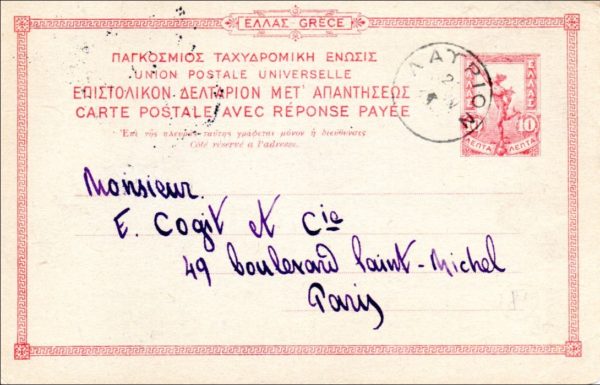 ΕΛΛΑΣ GRÈCE
ΠΑΓΚΟΣΜΙΟΣ ΤΑΧΥΔΡΟΜΙΚΗ ΕΝΩΣΙΣ
UNION POSTALE UNIVERSELLE
ΕΠΙΣΤΟΛΙΚΟΝ ΔΕΛΤΑΡΙΟΝ ΜΕΤ' ΑΠΑΝΤΗΣΕΩΣ
CARTE POSTALE AVEC RÉPONSE PAYÉE
Ἐπὶ τῆς πλευρᾶς ταύτης γράφεται μόνον ἡ διεύθυνσις
Côté réservé a l'adresse.
ΛΑΥΡΙΟΝ
2
ΕΛΛΑΣ ΕΛΛΑΣ
10 10
ΛΕΠΤΑ ΛΕΠΤΑ
Monsieur.
E. Cogit et Cie
49 boulevard Saint-Michel
Paris